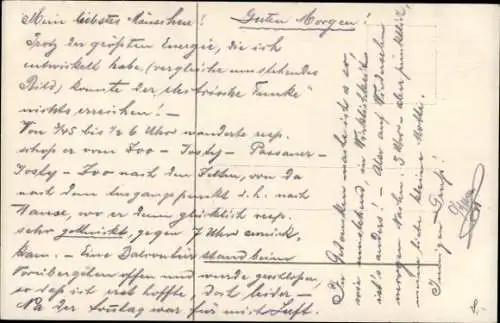 Mein liebstes Mäuschen!
Guten Morgen!
Trotz der größten Energie, die ich
entwickelt habe (vergleiche umstehendes
Bild) konnte der elektrische Funke"
nichts erreichen! —
Von 3/45 bis 1/2 6 Uhr wanderte resp.
schop er vom Zoo - Josty - Passauer -
Josty - Zoo nach den Zelten, von da
nach dem Ausgangspunkt d.h. nach
Hause, wo er dann glücklich resp.
sehr geknickt, gegen 7 Uhr
kam. - Eine Balkontür stand beim
Vorübergehen offen und wurde geschlossen,
so daß ich erst hoffte, doch leider -
Na der Sonntag war für mich Luft.
In Gedanken mache ich's so,
wie umstehend, in Wirklichkeit
ist's anders! - Also auf Wiedersehen
morgen Nachm. 3 Uhr - aber pünktlich,
meine liebe kleine Motte.
Innigen Gruß!